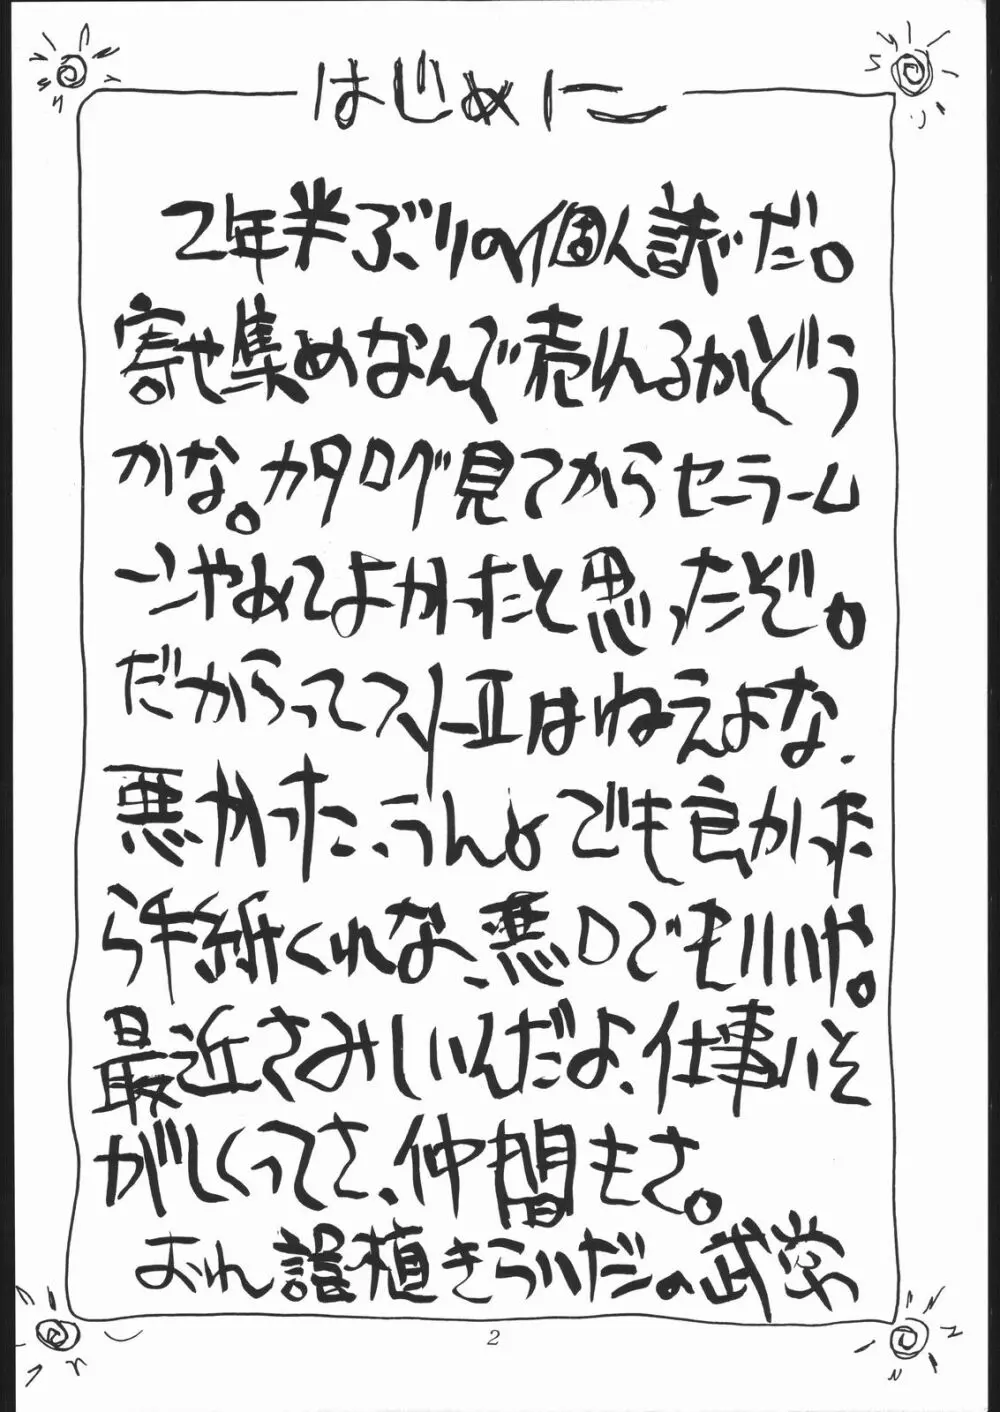 はじめに
2年半ぶりの個人誌だ。
寄せ集めなんで売れるかどう
かな。カタログ見てからセーラーム
ーンやめてよかったと思ったぞ。
だからってスリーIIはねえよな、
悪かった、うんよ でも良かった
ら手紙くれな、悪口でもいいや。
最近さみしいんだよ、仕事いそ
がしくってさ、仲間もさ。
おれ誤植きらいだ。の武学
2